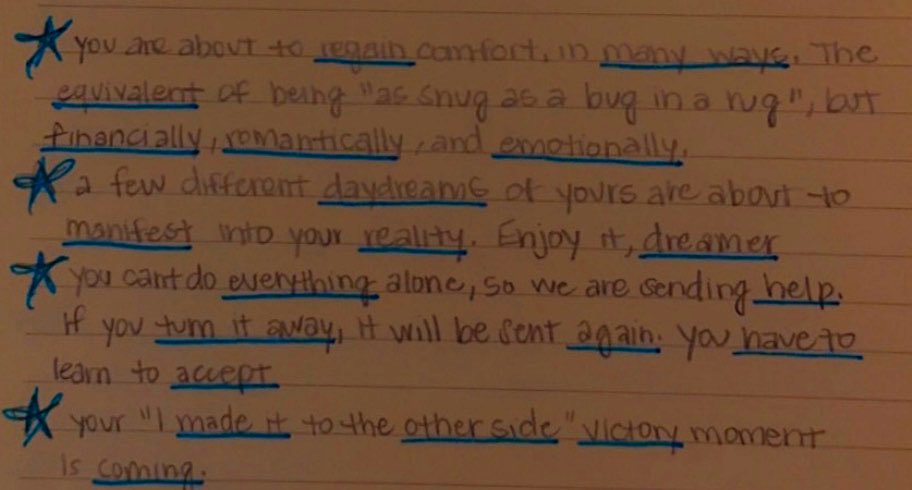 you are about to regain comfort, in many ways. The
equivalent of being "as snug as a bug in a rug", but
financially, romantically, and emotionally.
a few different daydreams of yours are about to
manifest into your reality. Enjoy it, dreamer
you can't do everything alone, so we are sending help.
If you turn it away, it will be sent again. you have to
learn to accept
your "I made it to the other side" victory moment
is coming.